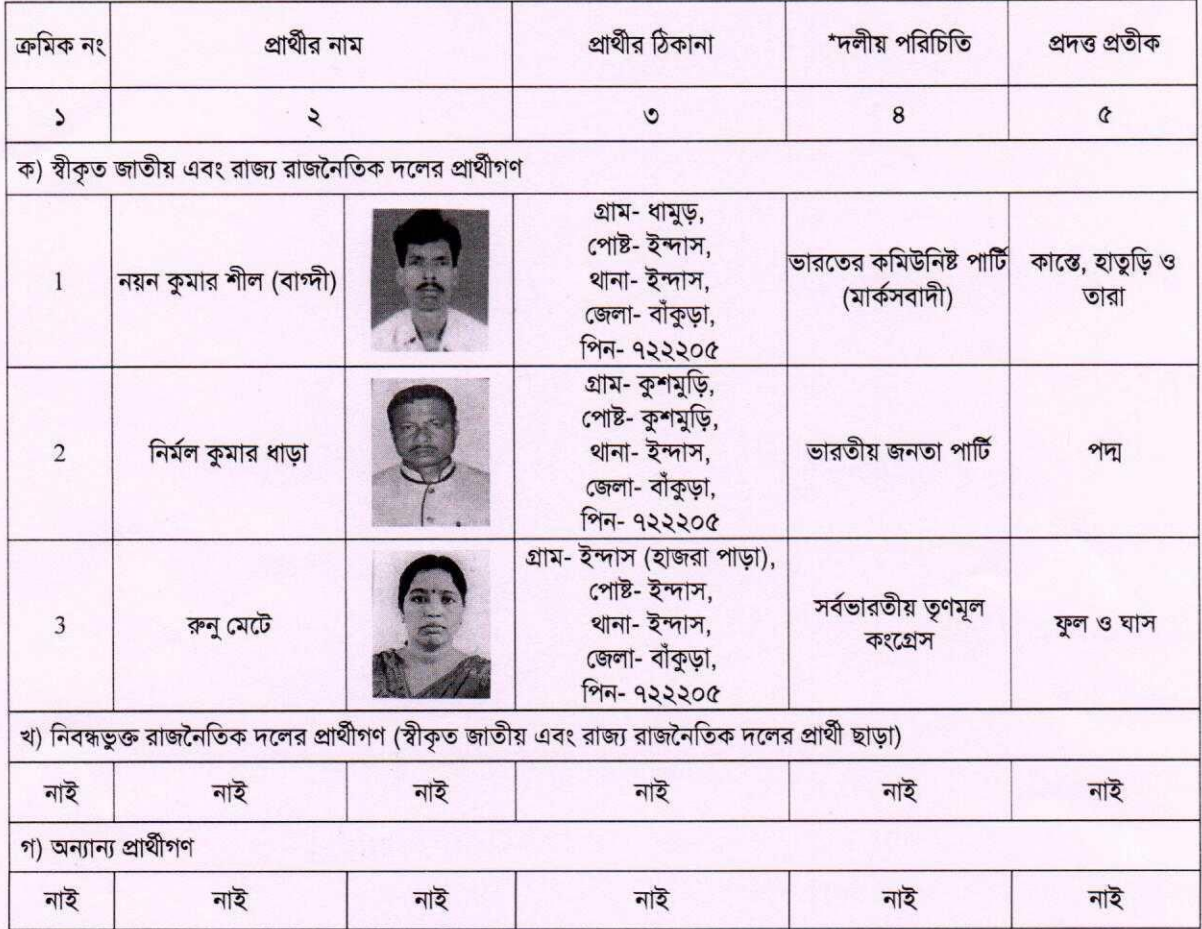 ক্রমিক নং প্রার্থীর নাম প্রার্থীর ঠিকানা *দলীয় পরিচিতি প্রদত্ত প্রতীক
১ ২ ৩ ৪ ৫
ক) স্বীকৃত জাতীয় এবং রাজ্য রাজনৈতিক দলের প্রার্থীগণ
1
নয়ন কুমার শীল (বাগ্দী)
গ্রাম- ধামুড়,
পোষ্ট- ইন্দাস,
থানা- ইন্দাস,
জেলা- বাঁকুড়া,
পিন- ৭২২২০৫
ভারতের কমিউনিষ্ট পার্টি
(মার্কসবাদী)
কাস্তে, হাতুড়ি ও
তারা
2
নির্মল কুমার ধাড়া
গ্রাম- কুশমুড়ি,
পোষ্ট- কুশমুড়ি,
থানা- ইন্দাস,
জেলা- বাঁকুড়া,
পিন- ৭২২২০৫
ভারতীয় জনতা পার্টি
পদ্ম
3
রুনু মেটে
গ্রাম- ইন্দাস (হাজরা পাড়া),
পোষ্ট- ইন্দাস,
থানা- ইন্দাস,
জেলা- বাঁকুড়া,
পিন- ৭২২২০৫
সর্বভারতীয় তৃণমূল
কংগ্রেস
ফুল ও ঘাস
খ) নিবন্ধভুক্ত রাজনৈতিক দলের প্রার্থীগণ (স্বীকৃত জাতীয় এবং রাজ্য রাজনৈতিক দলের প্রার্থী ছাড়া)
নাই নাই নাই নাই নাই নাই
গ) অন্যান্য প্রার্থীগণ
নাই নাই নাই নাই নাই নাই